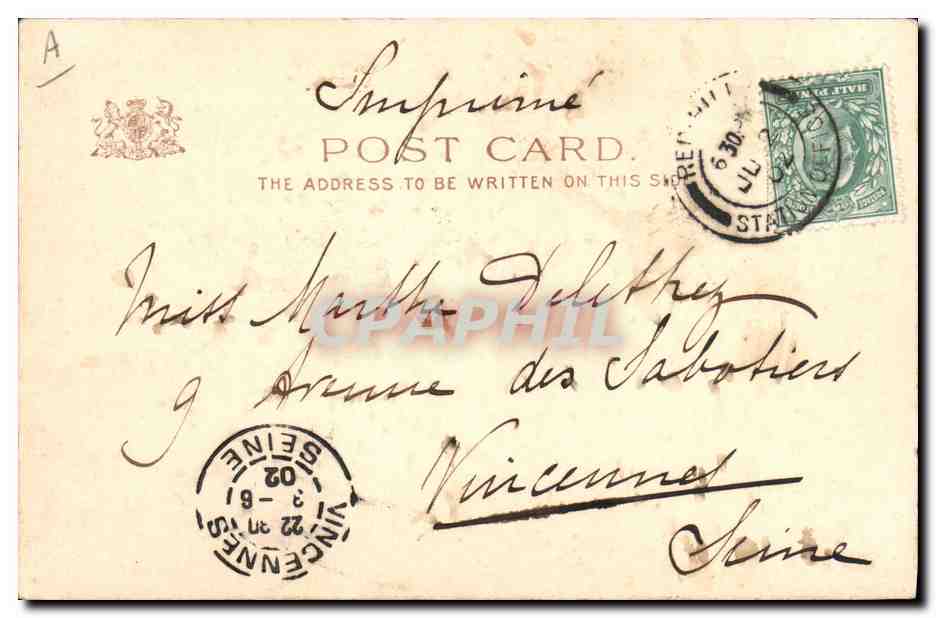 A
Imprimé
POST CARD.
THE ADDRESS TO BE WRITTEN ON THIS SID
HALF PEN
6 30
JU 2
02
STATION OFFICE
Miss Marthe Delethez
CPAPHIL
9 Avenue des Sabotiers
Vincennes
Seine
VINCENNES
22 30
3 - 6
02
SEINE